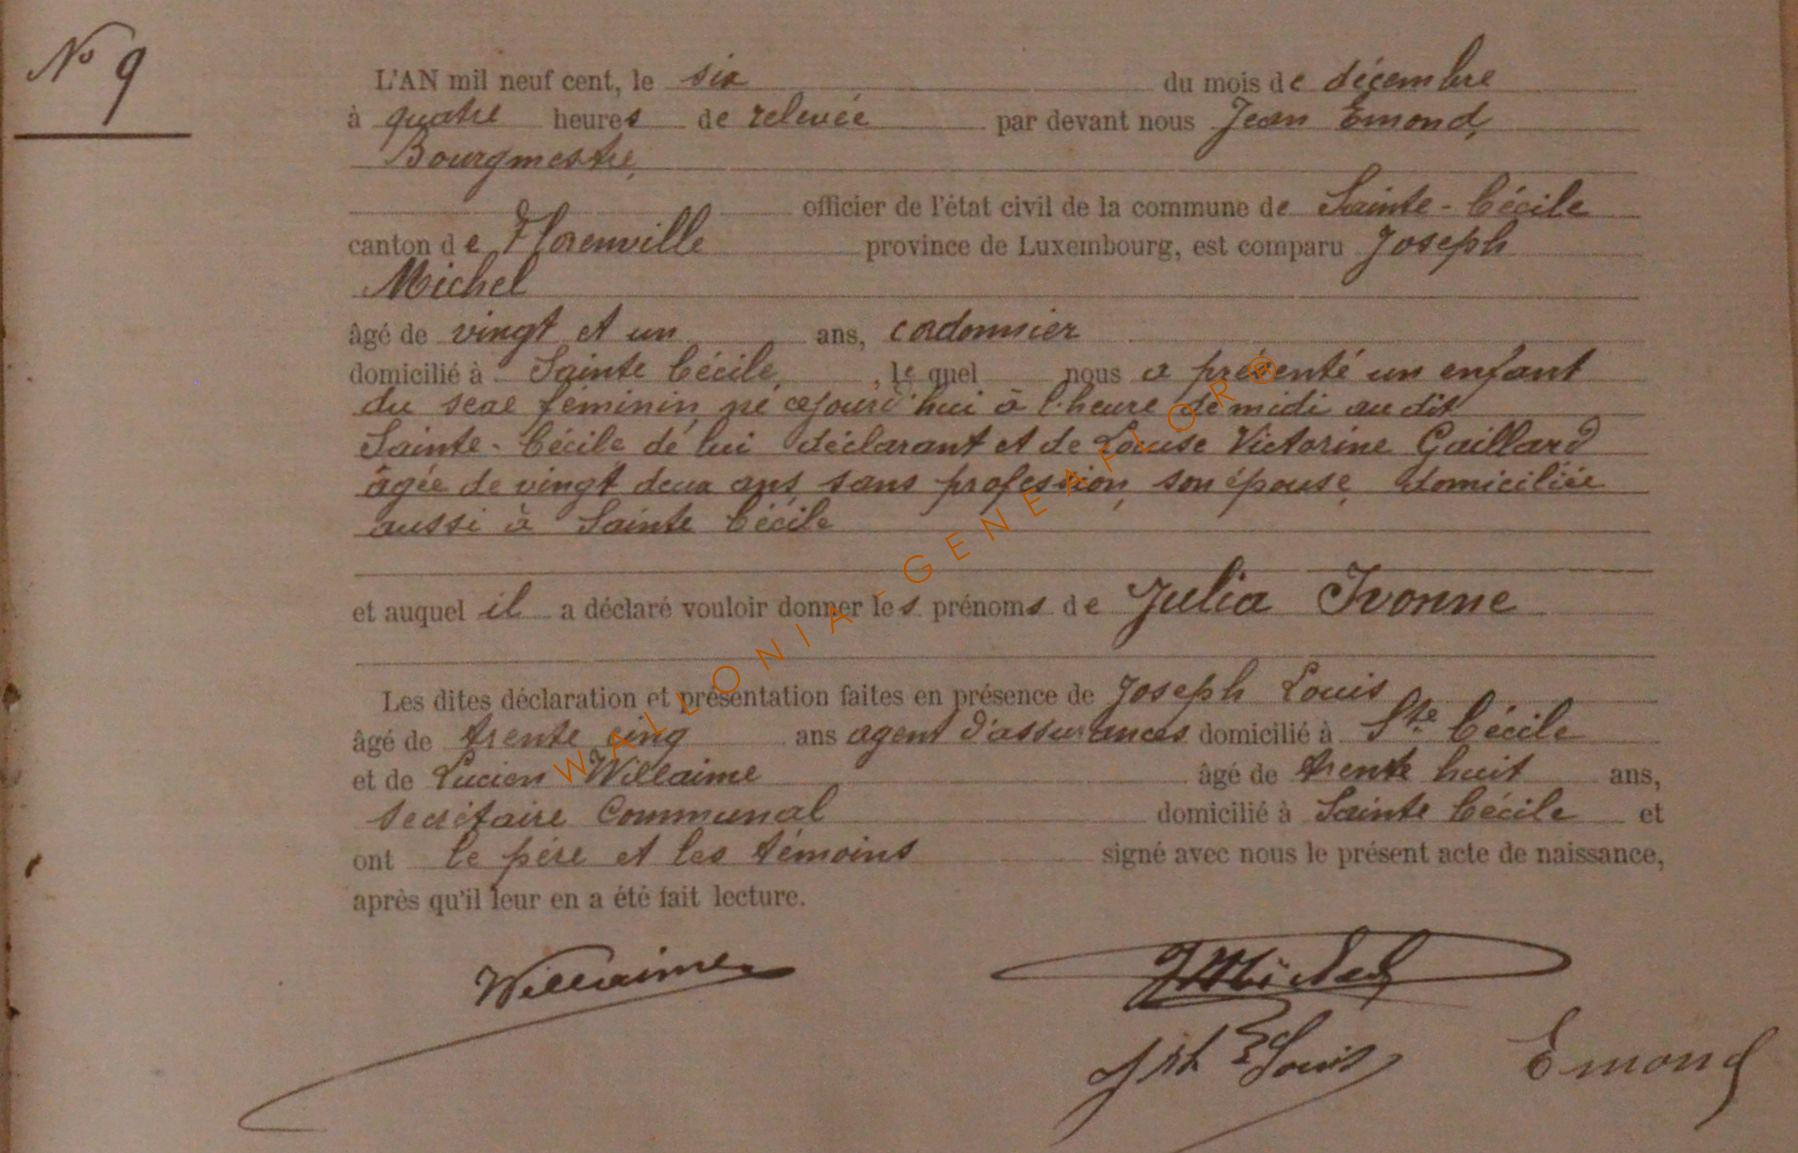 N° 9
L'AN mil neuf cent, le six du mois de décembre
à quatre heures de relevée par devant nous Jean Emond,
Bourgmestre,
officier de l'état civil de la commune de Sainte-Cécile
canton de Florenville province de Luxembourg, est comparu Joseph
Michel
âgé de vingt et un ans, cordonnier
domicilié à Sainte Cécile, , lequel nous a présenté un enfant
du sexe féminin, né cejourd'hui à l'heure de midi au dit
Sainte-Cécile de lui déclarant et de Louise Victorine Gaillard
âgée de vingt deux ans, sans profession, son épouse, domiciliée
aussi à Sainte Cécile
et auquel il a déclaré vouloir donner les prénoms de Julia Ivonne
Les dites déclaration et présentation faites en présence de Joseph Louis
âgé de trente cinq ans agent d'assurances domicilié à Ste Cécile
et de Lucien Willaime âgé de trente huit ans,
secrétaire communal domicilié à Sainte Cécile et
ont le père et les témoins signé avec nous le présent acte de naissance,
après qu'il leur en a été fait lecture.
Willaime JMichel
Jph Louis Emond
WALLONIA-GENEAFLOR®